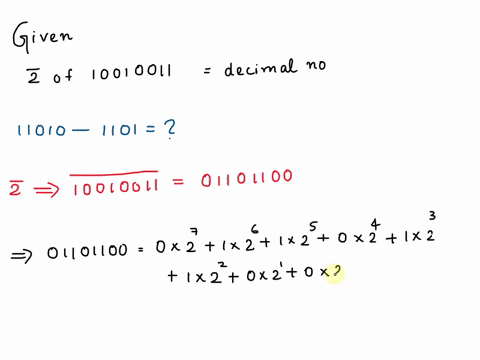 Given
2̅ of 10010011 = decimal no
11010 — 1101 = ?
2̅ ⟹ 1̅0̅0̅1̅0̅0̅1̅1̅ = 01101100
⟹ 01101100 = 0×2⁷ + 1×2⁶ + 1×2⁵ + 0×2⁴ + 1×2³
+ 1×2² + 0×2¹ + 0×2